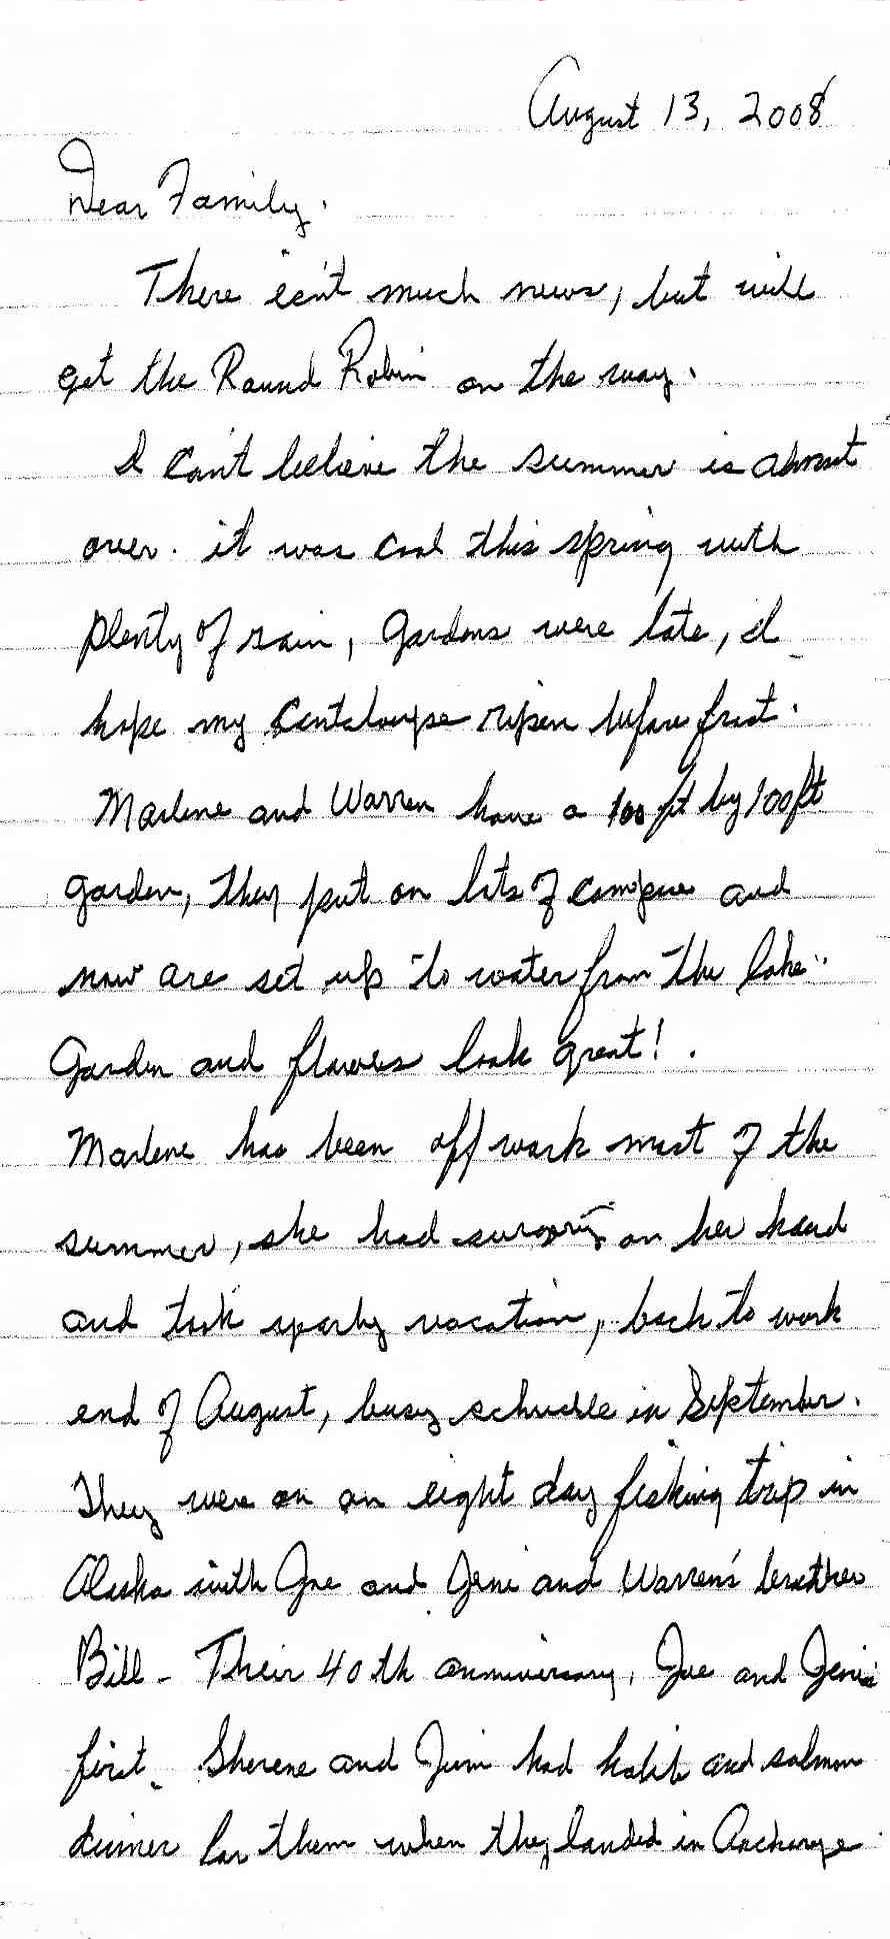 August 13, 2008
Dear Family.
There isn't much news, but will
get the Round Robin on the way.
I can't believe the summer is almost
over. it was cool this spring with
plenty of rain, gardens were late, I
hope my cantaloupe ripen before frost.
Marlene and Warren have a 100 ft by 100 ft
garden, they put on lots of and
now are set up to water from the lake..
Garden and flowers look great!.
Marlene has been off work most of the
summer, she had surgery on her hand
and took yearly vacation, back to work
end of August, busy schudle in September.
They were on an eight day fishing trip in
Alaska with Joe and Jeni and Warren's brother
Bill - Their 40th anniversary, Joe and Jeni's
first. Sherene and Jim had and salmon
dinner for them when they landed in